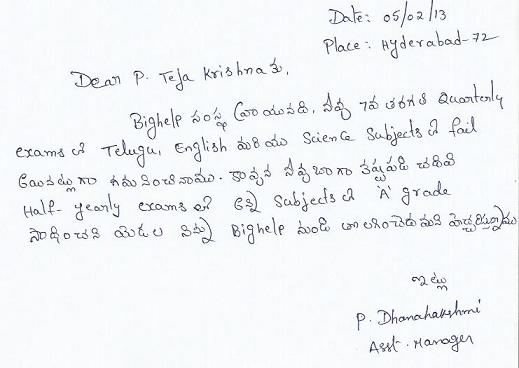 Date: 05/02/13
Place: Hyderabad-72
Dear P. Teja Krishna కు,
Bighelp సంస్థ వ్రాయునది, నీవు 7వ తరగతి Quarterly
exams లో Telugu, English మరియు Science Subjects లో fail
అయినట్లుగా గమనించినాము. కావున నీవు బాగా కష్టపడి చదివి
Half-yearly exams లో అన్ని Subjects లో 'A' grade
సాధించని యెడల నిన్ను Bighelp నుండి తొలగించెదమని హెచ్చరిస్తున్నాము
ఇట్లు
P. Dhanahakshmi
Asst. Manager